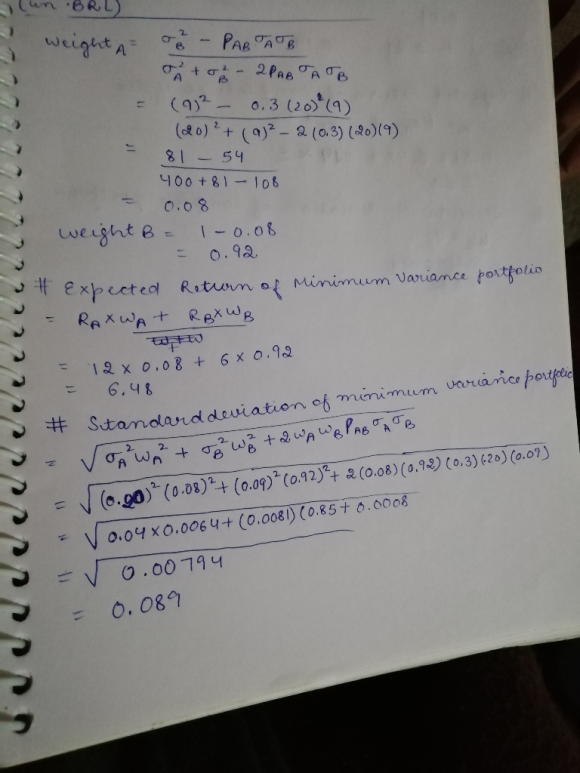 (in BRL)
Weight A = σ²B − PAB σA σB
σ²A + σ²B − 2PAB σA σB
= (9)² − 0.3 (20)² (9)
(20)² + (9)² − 2 (0.3) (20) (9)
= 81 − 54
400 + 81 − 108
= 0.08
Weight B = 1 − 0.08
= 0.92
# Expected Return of Minimum Variance portfolio
= RA × WA + RB × WB
= 12 × 0.08 + 6 × 0.92
= 6.48
# Standard deviation of minimum variance portfolio
= √σA² WA² + σB² WB² + 2 WA WB PAB σA σB
= √(0.20)² (0.08)² + (0.09)² (0.92)² + 2 (0.08) (0.92) (0.3) (.20) (0.09)
= √0.04 × 0.0064 + (0.0081) (0.85 + 0.0008
= √0.00794
= 0.089